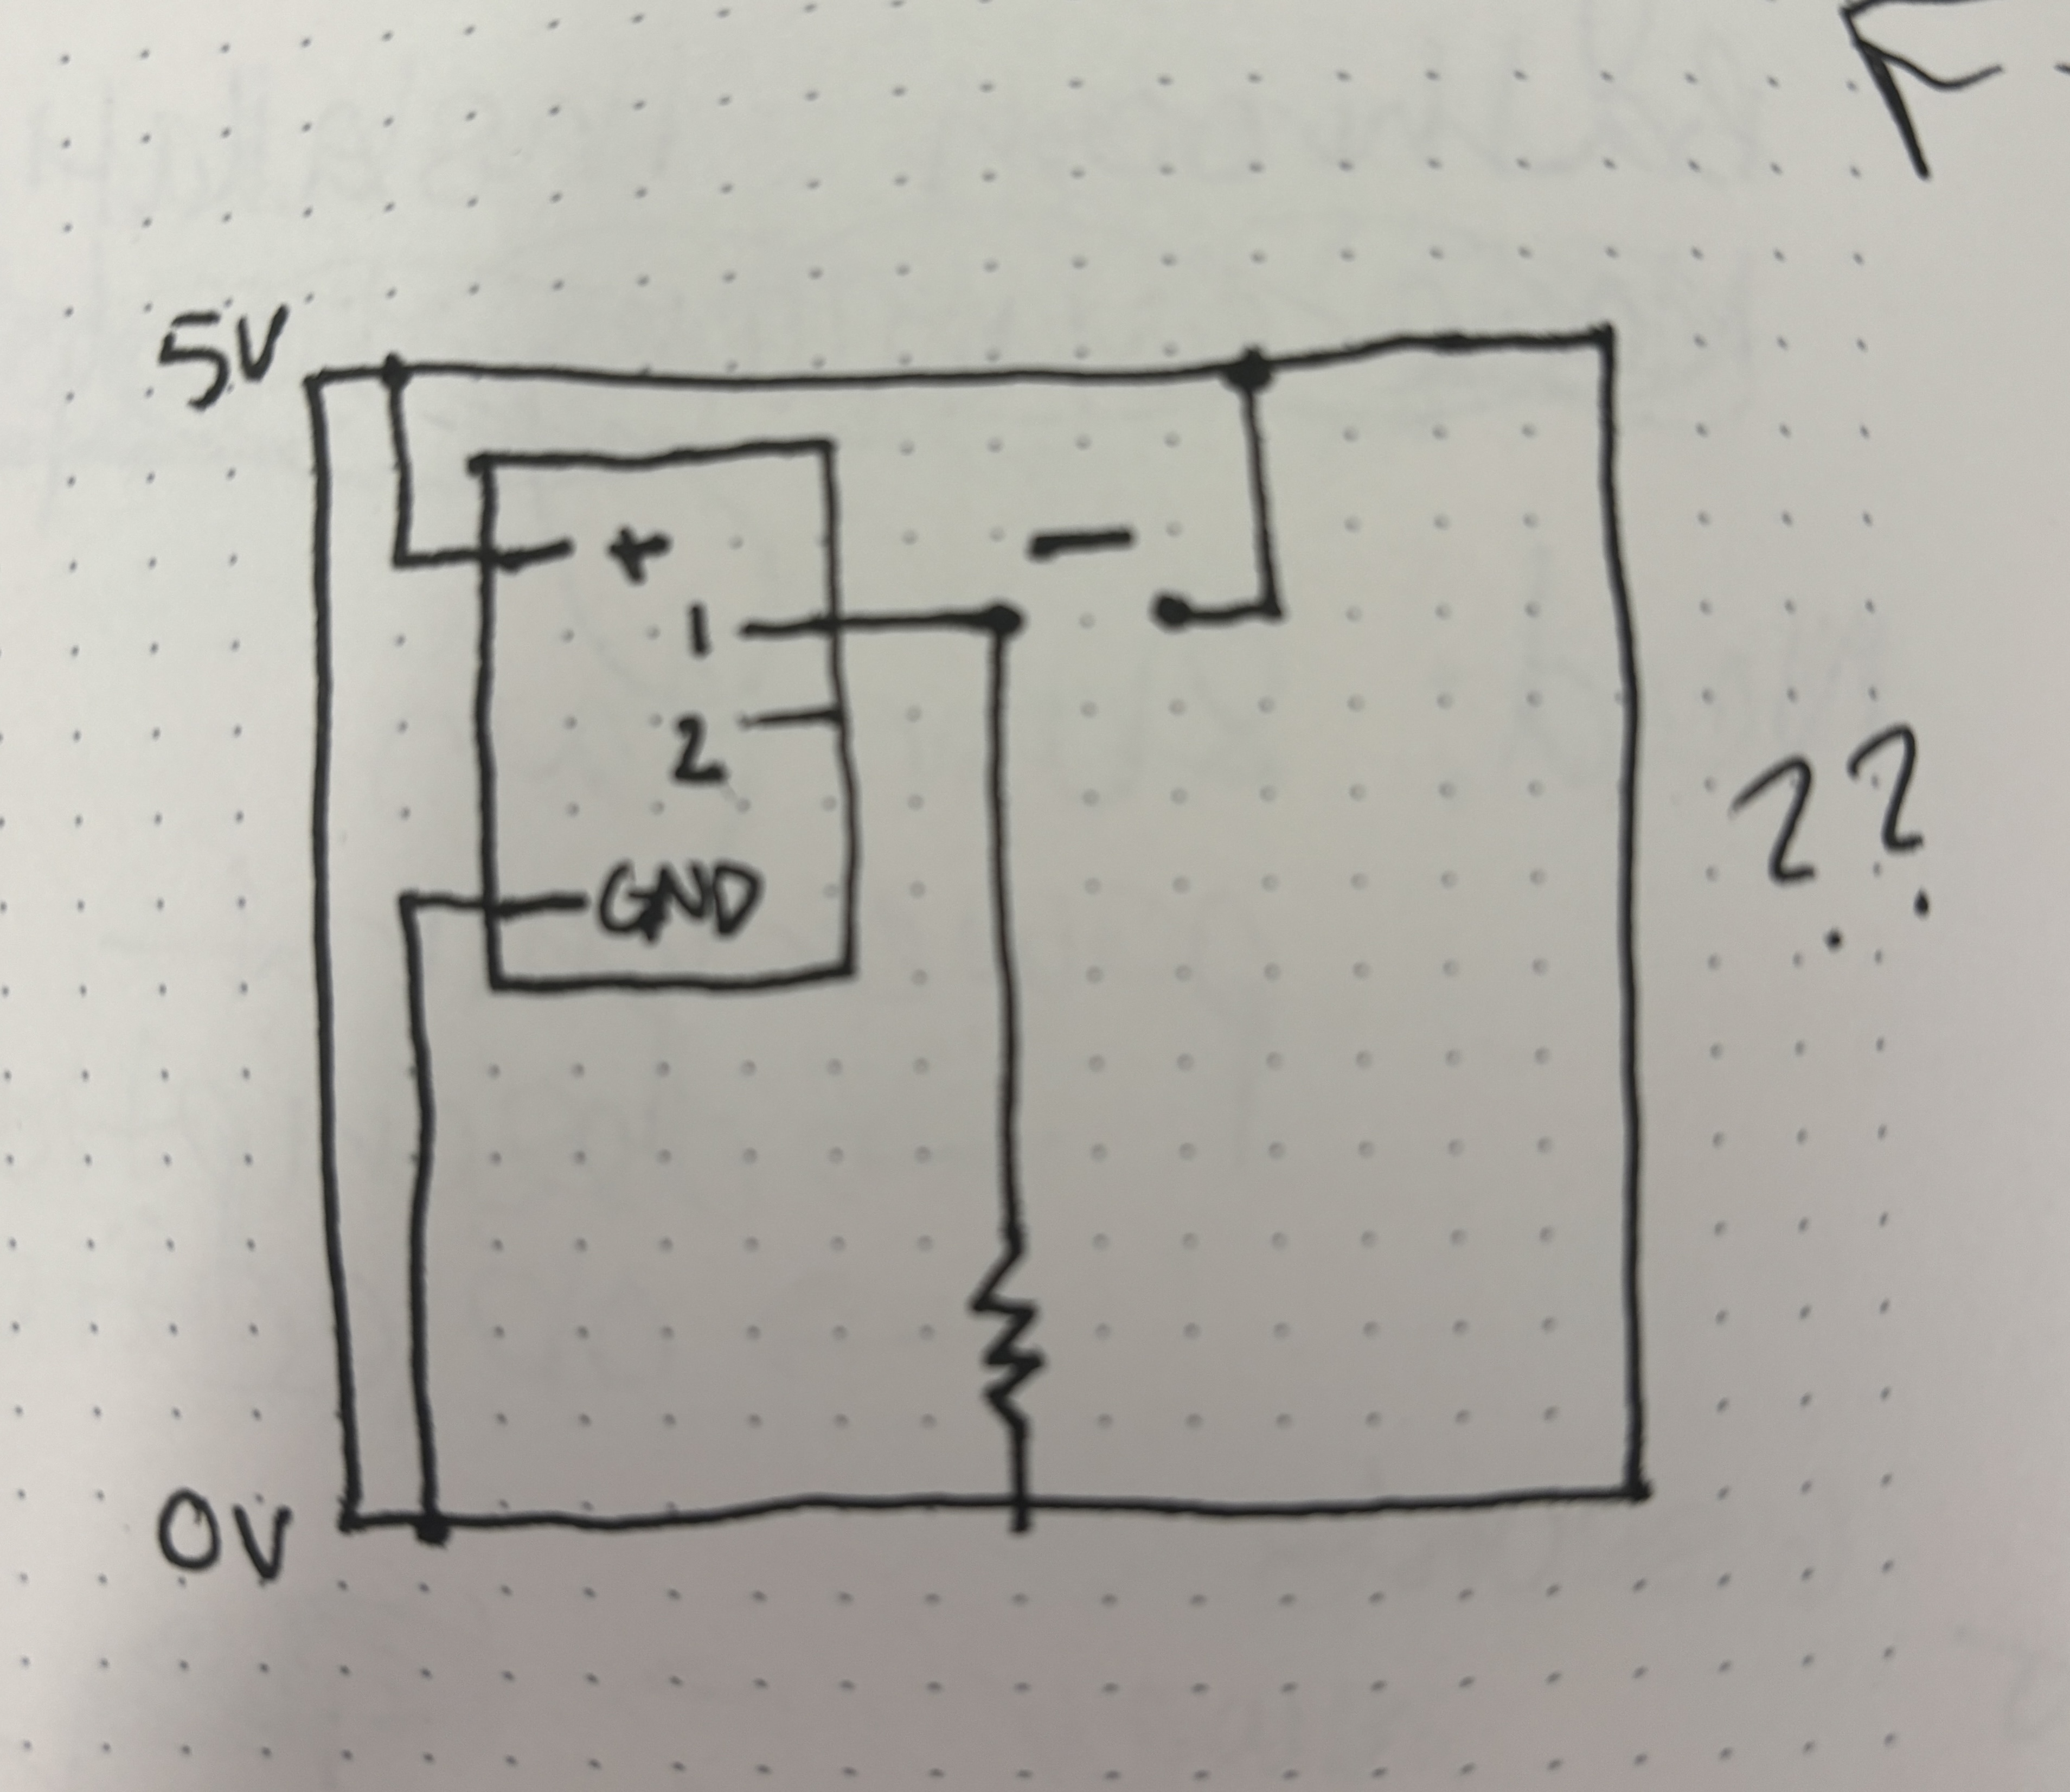 5V
+
1
2
??
GND
0V